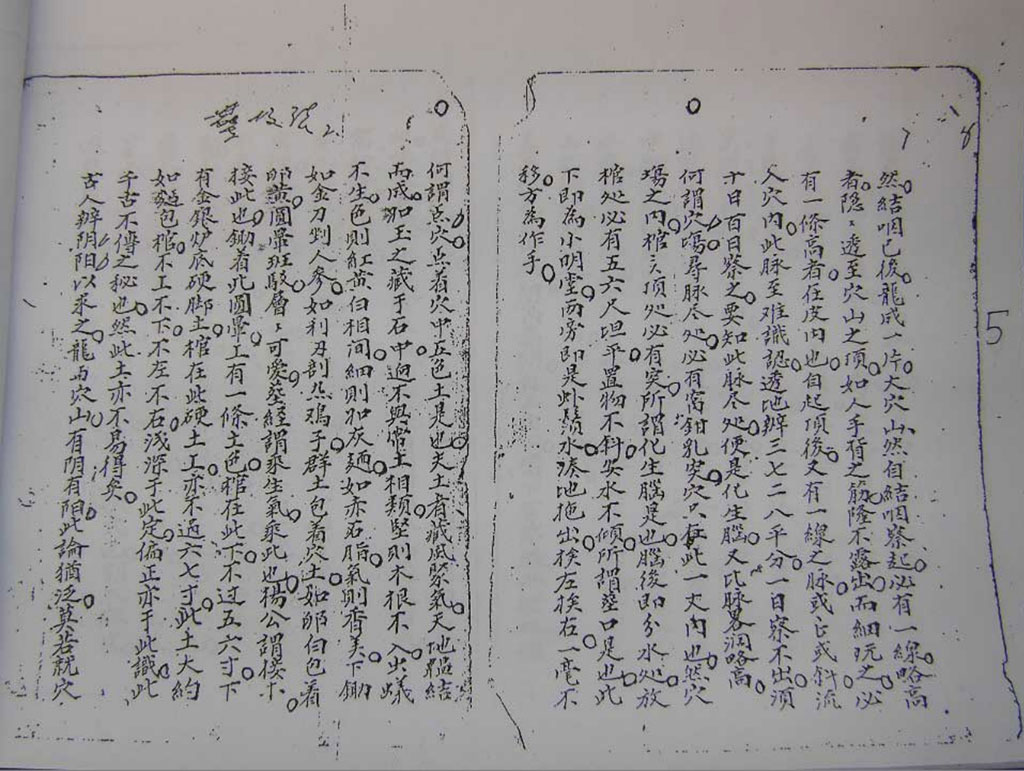 然結咽已後龍成一片大穴山然自結咽察起必有一線略高
者隐々透至穴山之顶如人手背之筋隆不露出而細玩之必
有一條高者在皮内也自起頂後又有一線之脉或正或斜流
入穴内此脉至难識認透地辨三七二八平分一日察不出須
十日百日察之要知此脉尽处便是化生腦又比脉畧濶略高
何謂穴塲尋脉尽处必有窩钳乳突穴只在此一丈内也然穴
塲之内棺之项处必有突所謂化生腦是也腦後即分水处放
棺处必有五六尺坦平置物不斜安水不倾所謂塟口是也此
下即為小明堂两旁即是虾鬚水凑地拖出挨左挨右一毫不
移方為作手
5
何謂点穴点着穴中五色土是也夫土者藏風聚氣天地韞結
而成如玉之藏于石中逈不與常土相類堅則木根不入虫蟻
不生色則紅黄白相间細則如灰麺如赤石脂氣則香美下鋤
如金刀剉人参如利刀剖热鸡子群土包着穴土如卵白包着
卵黄圓暈班駁層々可愛塟經謂乘生氣乘此也楊公謂接木
接此也鋤着此圓暈上有一條土色棺在此下不过五六寸下
有金銀炉底硬脚土棺在此硬土上亦不过六七寸此土大約
如包棺不上不下不左不右浅深于此定偏正亦于此識此
千古不傳之秘也然此土亦不易得矣
古人辨阴阳以求之龍与穴山有阴有阳此論猶泛莫若就穴